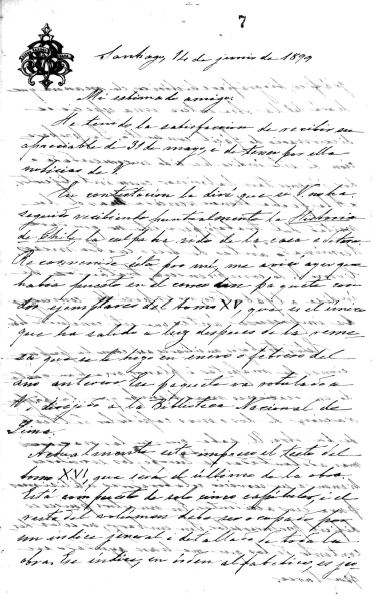 7
Santiago, 14 de junio de 1899
Mi estimado amigo:
He tenido la satisfaccion de recibir su
apreciable de 31 de mayo, i de tener por ella
noticias de V.
En contestacion le diré que si V no ha
seguido recibiendo puntualmente la Historia
de Chile, la culpa ha sido de la casa editora.
Reconvenida ésta por mí, me avisa ayer que
habia puesto en el correo un paquete con
dos ejemplares del tomo XV, que es el único
que ha salido a luz despues de la remesa
que se le hizo en enero o febrero del
año anterior. Ese paquete va rotulado a
V. dirijido a la Biblioteca Nacional de
Lima.
Actualmente está impreso el testo del
tomo XVI, que será el último de la obra.
Está compuesto de solo cinco capítulos, i el
resto del volúmen debe ser ocupado por
un índice jeneral i detallado de toda la
obra. Ese índice, en órden alfabético, es